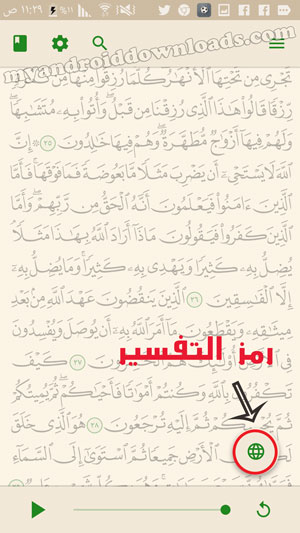 ١١:٢٩ ص
myandroiddownloads.com
تَجْرِي مِن تَحْتِهَا ٱلْأَنْهَٰرُ كُلَّمَا رُزِقُوا۟ مِنْهَا مِن
رِّزْقًا قَالُوا۟ هَٰذَا ٱلَّذِي رُزِقْنَا مِن قَبْلُ وَأُتُوا۟ بِهِۦ مُتَشَٰبِهًا
وَلَهُمْ فِيهَا أَزْوَٰجٌ مُّطَهَّرَةٌ وَهُمْ فِيهَا خَٰلِدُونَ ٢٥ ۞ إِنَّ
ٱللَّهَ لَا يَسْتَحْيِۦٓ أَن يَضْرِبَ مَثَلًا مَّا بَعُوضَةً فَمَا فَوْقَهَا فَأَمَّا
ٱلَّذِينَ ءَامَنُوا۟ فَيَعْلَمُونَ أَنَّهُ ٱلْحَقُّ مِن رَّبِّهِمْ وَأَمَّا
ٱلَّذِينَ كَفَرُوا۟ فَيَقُولُونَ مَاذَآ أَرَادَ ٱللَّهُ بِهَٰذَا مَثَلًا
يُضِلُّ بِهِۦ كَثِيرًا وَيَهْدِي بِهِۦ كَثِيرًا وَمَا يُضِلُّ بِهِۦٓ
إِلَّا ٱلْفَٰسِقِينَ ٢٦ ٱلَّذِينَ يَنقُضُونَ عَهْدَ ٱللَّهِ مِنۢ بَعْدِ
مِيثَٰقِهِۦ وَيَقْطَعُونَ مَآ أَمَرَ ٱللَّهُ بِهِۦٓ أَن يُوصَلَ وَيُفْسِدُونَ
رمز التفسير
٢٧ كَيْفَ
تَكْفُرُونَ وَكُنتُمْ أَمْوَٰتًا فَأَحْيَٰكُمْ ثُمَّ يُمِيتُكُمْ
ثُمَّ يُحْيِيكُمْ ثُمَّ إِلَيْهِ تُرْجَعُونَ ٢٨ هُوَ ٱلَّذِي خَلَقَ
ٱلْأَرْضِ جَمِيعًا ثُمَّ ٱسْتَوَىٰٓ إِلَى ٱلسَّمَآءِ